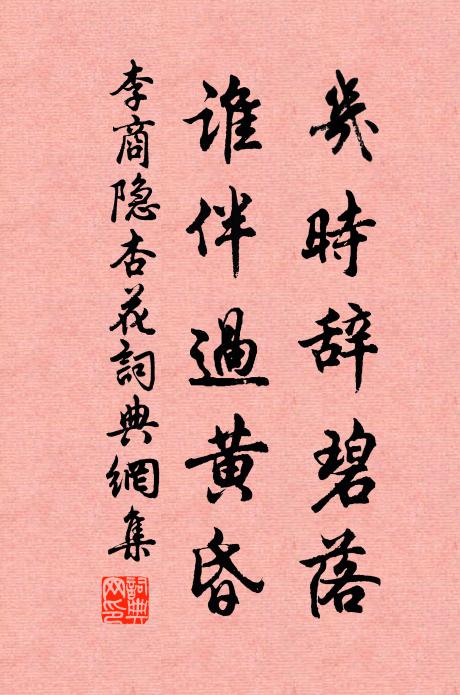 幾時辞碧落
誰伴過黄昏
李商隐杏花詞典網集
詞典网印